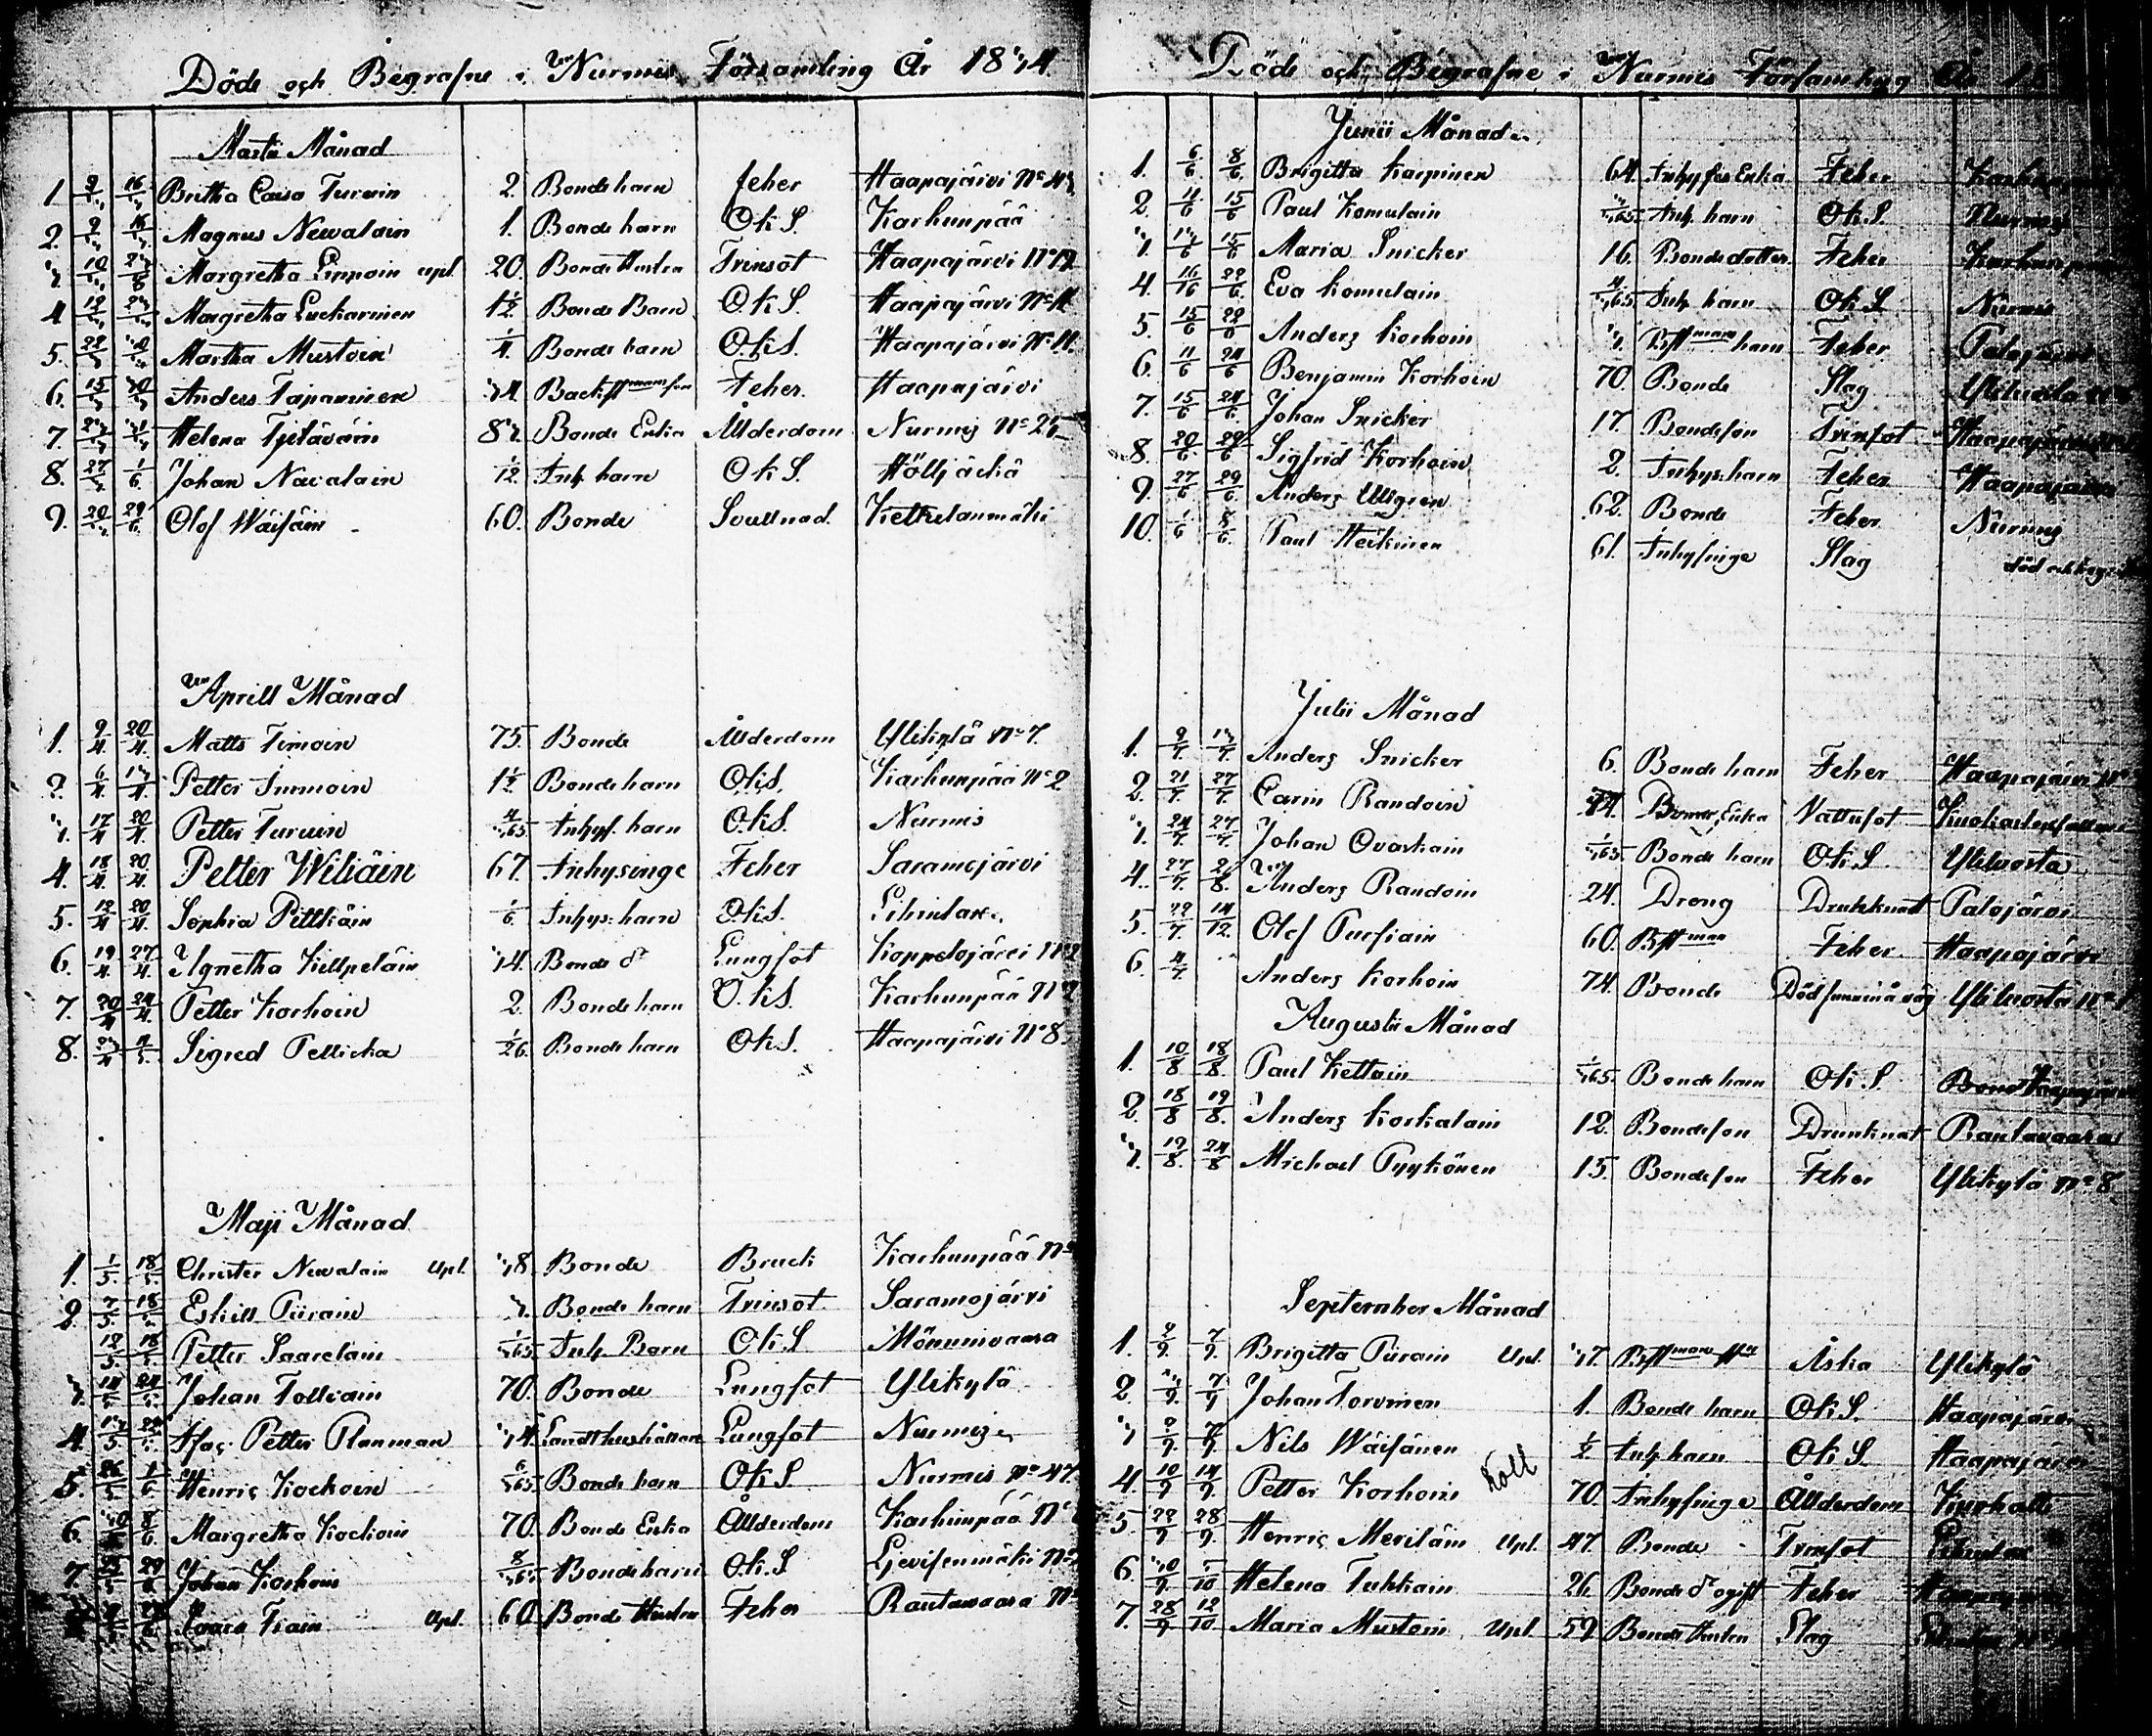 Döde och Begrafne i Nurmis Församling År 1834.
Martii Månad
1 9/3 16/3 Britha Caisa Turuin 2. Bonde barn feber Haapajärvi No
2. 9/3 16/3 Magnus Newalain 1. Bonde barn Ok S. Karhunpää
3 10/3 23/3 Margretha Limoin upl. 20. Bonde Hustru Trinsot Haapajärvi No
4 12/3 23/3 Margretha Luckarinen 1 1/2 Bonde Barn O.k S. Haapajärvi No 11
5. Martha Mustoin 1/4. Bonde barn O.k S. Haapajärvi No 11.
6. 15/3 30/3 Anders Tapaninen 34 Backstmans son Feber. Haapajärvi
7. 23/3 31/3 Helena Tjetäväin 83. Bonde Enka Ålderdom Nurmis No 25
8. 27/3 1/6. Johan Navalain 1/12. Inh. barn Ok S. Höljäckä
9. 20/3 29/6. Olof Wäisäin 60. Bonde Svullnad. Kelkulanmäki
Aprill Månad
1. 9/4 20/4. Matts Timoin 75. Bonde Ållderdom Ylikylä No 7.
2. 6/4. 13/4. Petter Immoin 1 1/2 Bonde barn OkS. Karhunpää No 2
3. 17/4 20/4 Petter Turuin 4/365 Inhys. barn O.kS. Nurmis
4. 18/4. 20/4. Petter Wiliäin 67. Inhysinge Feber Saramojärvi
5. 12/4 20/4. Sophia Pittkäin 1/6 Inhys. barn O.kS.
6. 19/4 27/4. Agnetha Killpeläin 34. Bonde dr Lungsot Koppelojärvi No 2
7. 20/4 24/4. Petter Korhoin 2. Bonde barn O.kS. Karhunpää No 2
8. 23/4 4/5. Sigred Pellicka 1/26. Bonde barn OkS. Haapajärvi No 8.
Maji Månad
1. 1/5. 18/5. Christer Newalain upl. 38. Bonde Bruck Karhunpää No
2. 7/5. 18/5 Eskill Piirain 3. Bonde barn Trinsot Saramojärvi
12/5. 18/5. Petter Saarelain 1/365. Inh. Barn Ok S Mönninvaara
3. 14/5 24/5. Johan Tolvain 70. Bonde Lungsot Ylikylä
4. 13/5 22/5. Isac Petter Planman 34 Landthushållare Lungsot Nurmis
5. 26/5 1/6 Henric Kockoin 6/365. Bonde barn Ok S Nurmis No 47
6. 30/5 8/6. Margretha Kockoin 70. Bonde Enka Ålderdom Karhunpää No
7. Johan Korhoin 8/365. Bonde barn Ok S No
upl. 60. Bonde Hustru Feber Rautavaara No
Döde och Begrafne i Nurmis Församling År 18
Junii Månad
1. 6/6 8/6. Brigitta Karpinen 64. Inhyses Enka Feber Karhunpää
2. 11/6 15/6 Paul Komulain 3/365. Inh. barn Ok S. Nurmis
3. 13/6 15/6 Maria Snicker 16. Bonde dotter Feber Karhunpää
4. 22/6. Eva Komulain 4/365. Inh. barn Ok S Nurmis
5. 15/6 22/6 Anders Korhoin 3. Bstmans barn Feber Palojärvi
6. 11/6 24/6 Benjamin Korhoin 70. Bonde Slag
7. 15/6 24/6. Johan Snicker 17. Bondeson Trinsot Haapajärvi
8. 20/6. 29/6 Sigfrid Korhoin 2. Inhys. barn Feber Haapajärvi
9. 27/6 29/6. Anders Ullgren 62. Bonde Feber Nurmis
10. 1/6 8/6. Paul Heikinen 61. Inhysinge Slag död och begr
Julii Månad
1. 9/7. 13/7. Anders Snicker 6. Bonde barn Feber Haapajärvi No
2. 21/7. 27/7. Carin Randoin Bonde Enka Vattusot
3. 24/7. 27/7. Johan Ovaskain 1/365. Bonde barn Ok S
4. 27/7. Anders Randoin 24. Dreng Drunknat Palojärvi
5. 29/7. 14/12. Olof Pursiain 60. Bstman Feber Haapajärvi
6. 4/7. Anders Korhoin 74. Bonde Död funnin å väg
Augusti Månad
1. 10/8 18/8. Paul Kettoin 1/365. Bonde barn Ok. S
2. 18/8 19/8. Anders Korkalain 12. Bondeson Drunknat Rautavaara
3. 19/8. 24/8 Michael Pyykönen 15. Bondeson Feber Ylikylä No 8.
September Månad
1. 2/9. 7/9. Brigitta Piirain Upl. 37. Bstmans Hu Aska Ylikylä
2. 3/9. 7/9 Johan Torvinen 1. Bonde barn Ok S. Haapajärvi
3 9/9. 7/9 Nils Wäisänen 1/2 Inh. barn Ok S. Haapajärvi
4. 10/9 14/9. Petter Korhoin Koll 70. Inhysinge Ållderdom
5. 22/9 28/9. Henric Meriläin upl. 47. Bonde Trinsot
6. 30/9. 5/10 Helena Tuhkain 26. Bonde dr ogift Feber
7. 28/9 12/10. Maria Mustoin Upl. 59. Bonde Hustru Slag